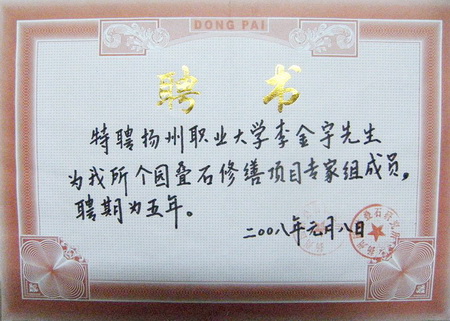 DONG PAI
聘书
特聘扬州职业大学李金宇先生
为我所个园叠石修缮项目专家组成员,
聘期为五年。
二00八年元月八日